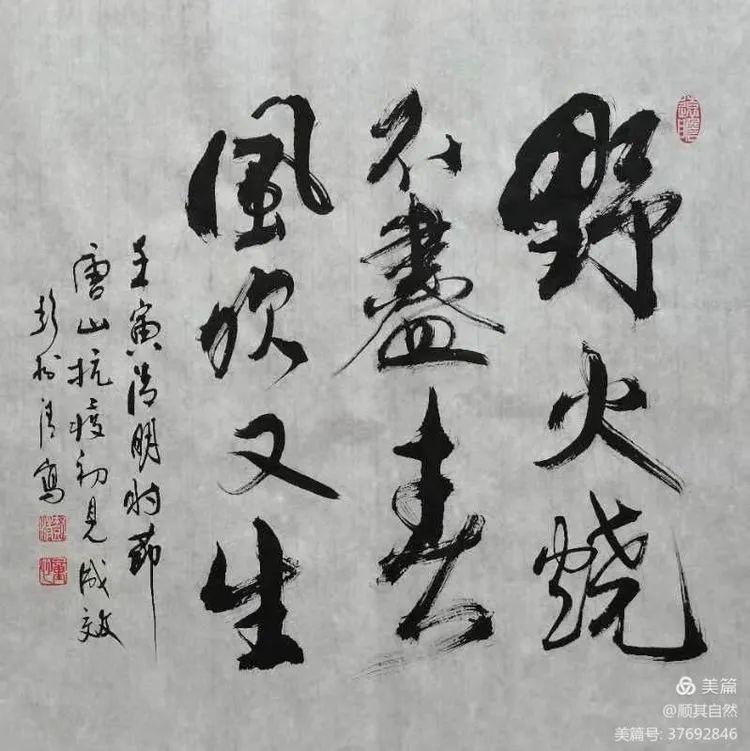 野火烧
不盡春
風吹又生
壬寅清明时节
唐山抗疫初見成效
美篇
@顺其自然
美篇号: 37692846